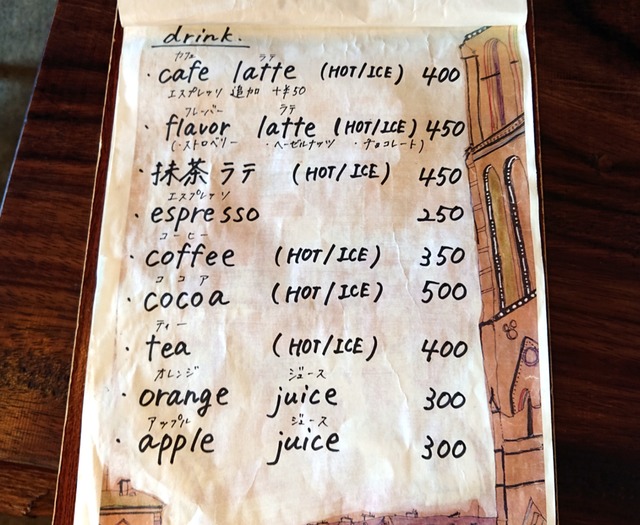 drink.
カフェ ラテ
・cafe latte (HOT/ICE) 400
エスプレッソ 追加 +¥50
フレーバー ラテ
・flavor latte (HOT/ICE) 450
(・ストロベリー ・ヘーゼルナッツ ・チョコレート)
・抹茶ラテ (HOT/ICE) 450
エスプレッソ
・espresso 250
コーヒー
・coffee (HOT/ICE) 350
ココア
・cocoa (HOT/ICE) 500
ティー
・tea (HOT/ICE) 400
オレンジ ジュース
・orange juice 300
アップル ジュース
・apple juice 300